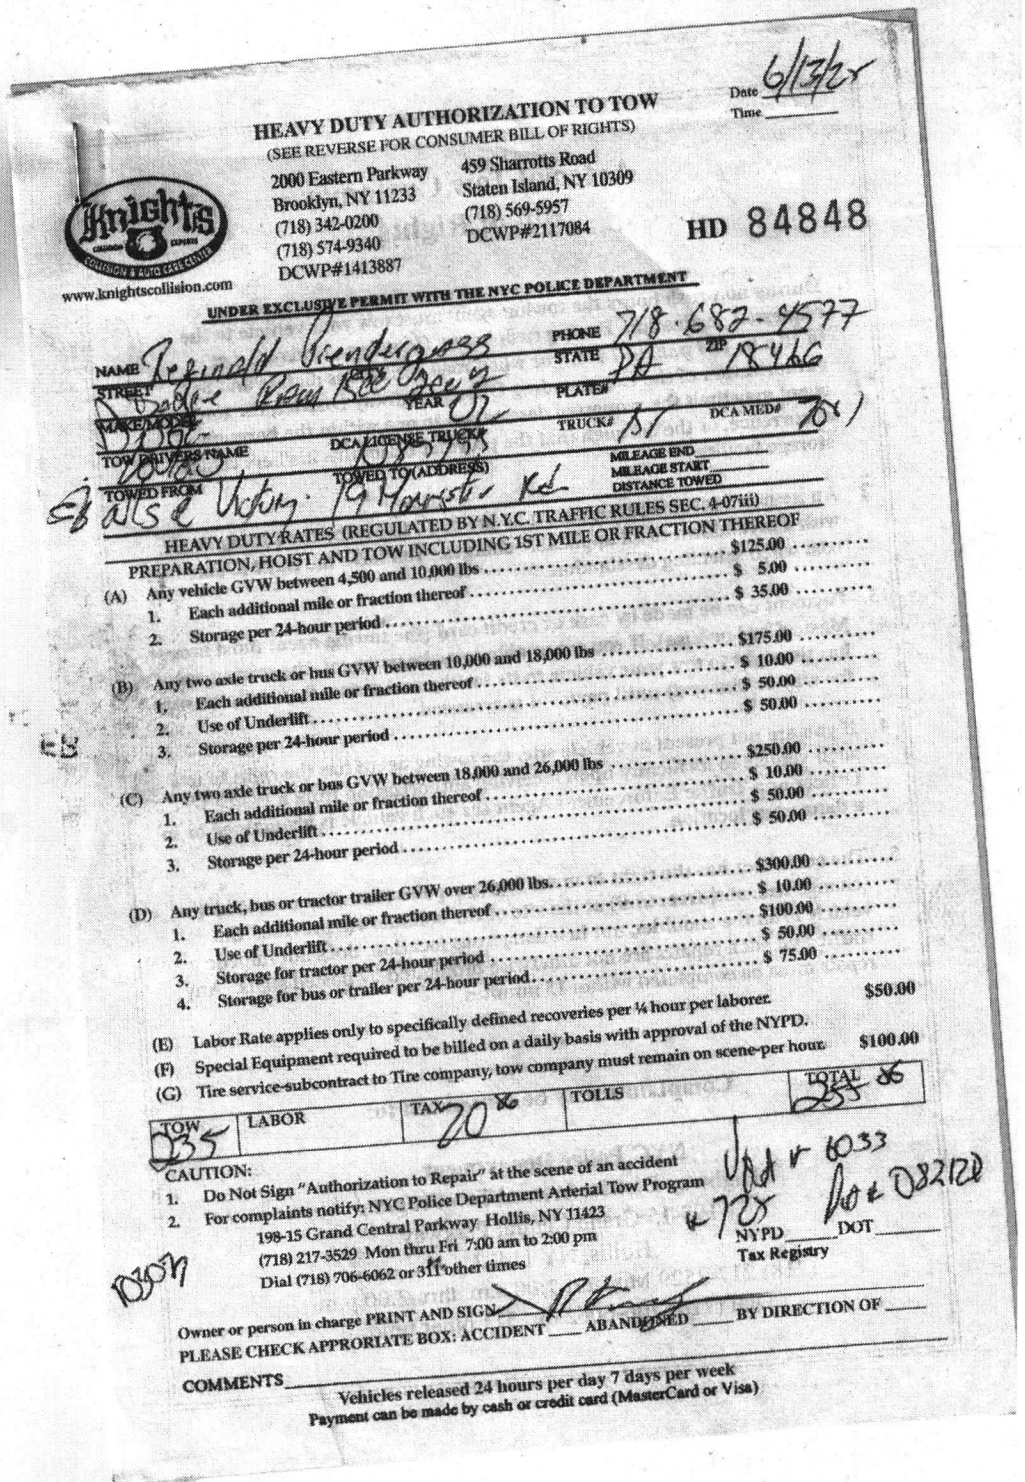 Date 6/13/2
Time
HEAVY DUTY AUTHORIZATION TO TOW
(SEE REVERSE FOR CONSUMER BILL OF RIGHTS)
2000 Eastern Parkway
Brooklyn, NY 11233
(718) 342-0200
(718) 574-9340
DCWP#1413887
459 Sharrotts Road
Staten Island, NY 10309
(718) 569-5957
DCWP#2117084
HD 84848
Knights
COLLISION EXPERTS
COLLISION & AUTO CARE CENTER
www.knightscollision.com
UNDER EXCLUSIVE PERMIT WITH THE NYC POLICE DEPARTMENT
NAME Reginald PHONE 718-682-4577
STREET CITY STATE PA ZIP 18466
MAKE/MODEL Dodge Ram YEAR PLATE#
TOW DRIVERS NAME DCA LICENSE TRUCK# TRUCK# DCA MED#
TOWED FROM TOWED TO (ADDRESS)
MILEAGE END
MILEAGE START
DISTANCE TOWED
HEAVY DUTY RATES (REGULATED BY N.Y.C. TRAFFIC RULES SEC. 4-07iii)
PREPARATION, HOIST AND TOW INCLUDING 1ST MILE OR FRACTION THEREOF
(A) Any vehicle GVW between 4,500 and 10,000 lbs $125.00
1. Each additional mile or fraction thereof $ 5.00
2. Storage per 24-hour period $ 35.00
(B) Any two axle truck or bus GVW between 10,000 and 18,000 lbs $175.00
1. Each additional mile or fraction thereof $ 10.00
2. Use of Underlift $ 50.00
3. Storage per 24-hour period $ 50.00
(C) Any two axle truck or bus GVW between 18,000 and 26,000 lbs $250.00
1. Each additional mile or fraction thereof $ 10.00
2. Use of Underlift $ 50.00
3. Storage per 24-hour period $ 50.00
(D) Any truck, bus or tractor trailer GVW over 26,000 lbs. $300.00
1. Each additional mile or fraction thereof $ 10.00
2. Use of Underlift $100.00
3. Storage for tractor per 24-hour period $ 50.00
4. Storage for bus or trailer per 24-hour period $ 75.00
(E) Labor Rate applies only to specifically defined recoveries per ¼ hour per laborer. $50.00
(F) Special Equipment required to be billed on a daily basis with approval of the NYPD.
(G) Tire service-subcontract to Tire company, tow company must remain on scene-per hour. $100.00
TOW 235 LABOR TAX 20 86 TOLLS TOTAL 255 86
CAUTION:
1. Do Not Sign "Authorization to Repair" at the scene of an accident
2. For complaints notify: NYC Police Department Arterial Tow Program
198-15 Grand Central Parkway Hollis, NY 11423
(718) 217-3529 Mon thru Fri 7:00 am to 2:00 pm
Dial (718) 706-6062 or 311 other times
6033
082120
NYPD DOT
Tax Registry
Owner or person in charge PRINT AND SIGN
PLEASE CHECK APPRORIATE BOX: ACCIDENT ABANDONED BY DIRECTION OF
COMMENTS
Vehicles released 24 hours per day 7 days per week
Payment can be made by cash or credit card (MasterCard or Visa)